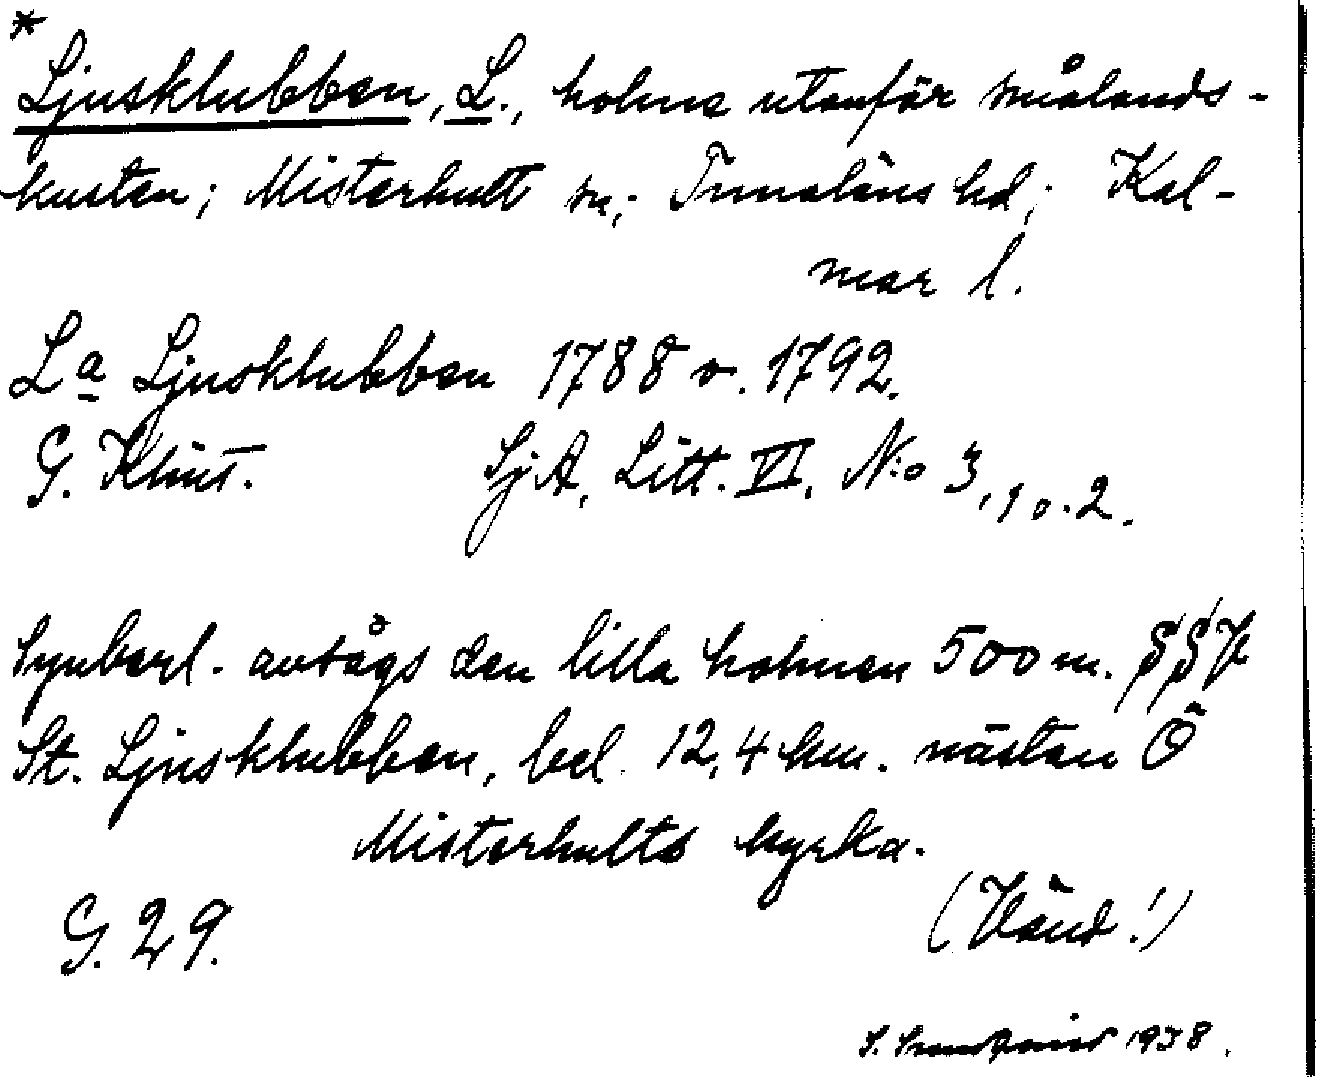 *
Ljusklubben, L., holme utanför smålands-
kusten; Misterhult sn; Tunaläns hd; Kal-
mar l.
La Ljusklubben 1788 o. 1792.
G. Klint. SjA, Litt. VI, No 3, 1 o. 2.
Synbarl. avsågs den lilla holmen 500 m. SSV
St. Ljusklubben, bel. 12,4 km. nästan Ö
Misterhults kyrka.
G. 29. (Vänd!)
S. 1938.